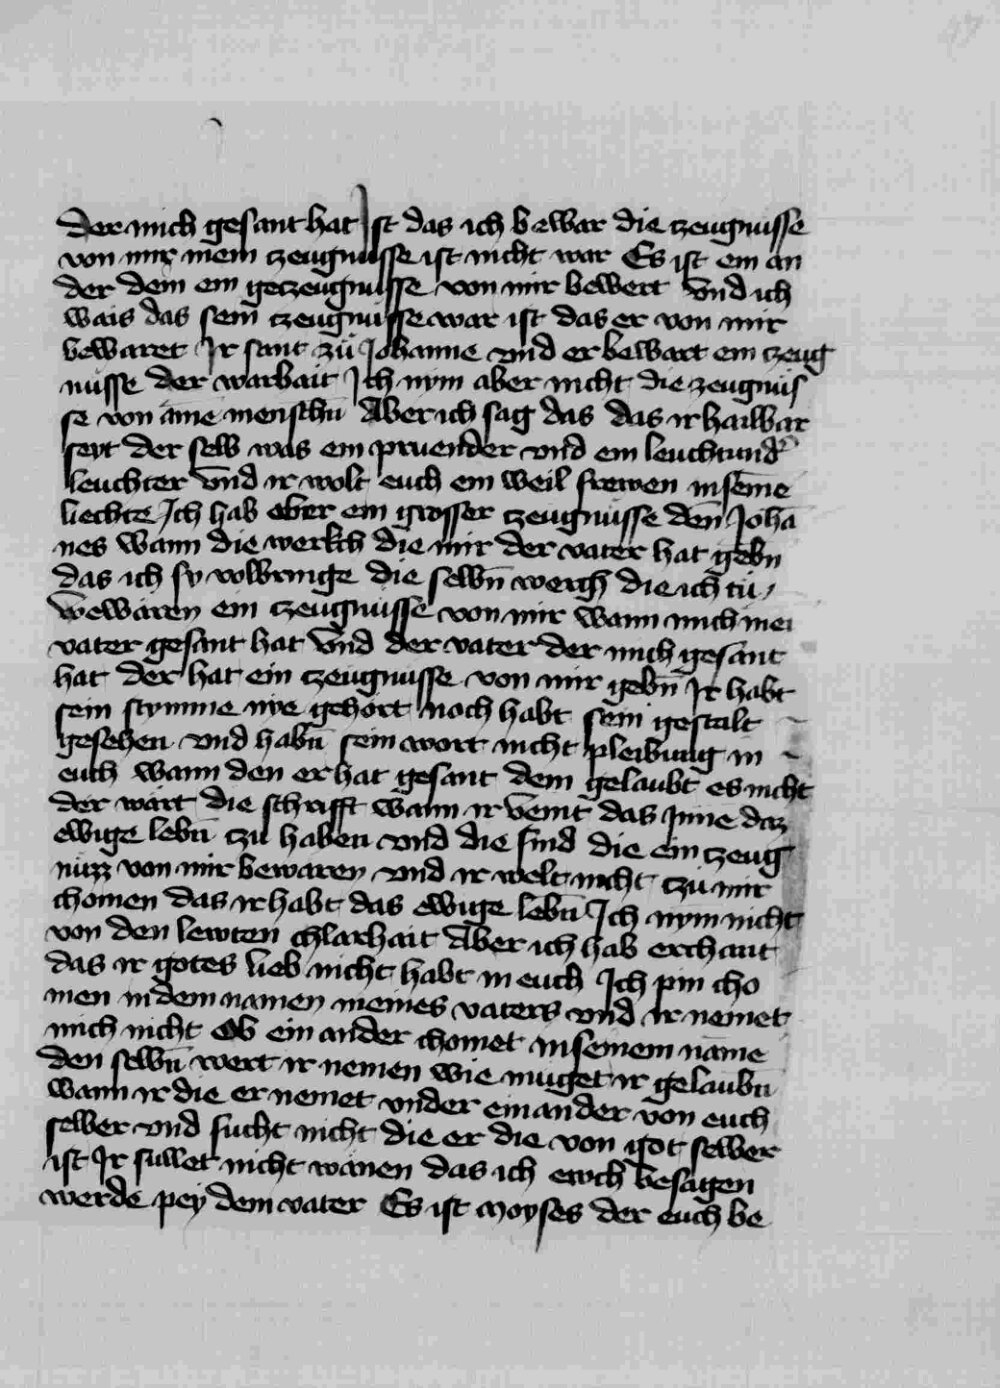 der mich gesant hat Ist das ich bewar die zeugnusse
von mir mein zeugnusse ist nicht war Es ist ein an
der dem ein geczeugnusse von mir bewert Vnd ich
wais das sein tzeugnusse war ist das er von mir
bewaret Ir sant zü Johanne vnd er bewart ein czeug
nusse der warhait Ich nym aber nicht die zeugnus
se von ame menschn̄ Aber ich sag das das ir hailwar
seyt der selb was ein pruender vnd ein leuchtund̄
leuchter Vnd ir wolt euch ein weil frewen in seine
liechte Ich hab aber ein grosser tzeugnusse den̄ Johā
nes wann die werkch die mir der vater hat gebn
das ich sy volbringe die selbn̄ werch die ich tü
bewären ein tzeugnusse von mir wann mich mei
vater gesant hat Vnd der vater der mich gesant
hat der hat ein czeugnusse von mir gebn̄ Ir habt
sein stymme nye gehört noch habt sein gestalt
gesehen vnd habn̄ sein wort nicht pleibung in
euch wann den er hat gesant dem gelaubt es nicht
der wart die schrifft wann ir vemt das Inne daz
ewige lebn̄ czu haben vnd die sind die ein czeug
nüzz von mir bewaren vnd ir welt nicht czu mir
chomen das ir habt das ewige lebn̄ Ich nym nicht
von den lewten chlarhait Aber ich hab erchant
das ir gotes lieb nicht habt in euch Ich pin cho
men in dem namen meines vaters vnd ir nemet
mich nicht Ob ein ander chomet in seinem name
den selbn̄ wert ir nemen wie muget ir gelaubn̄
wann ir die er nemet vnder einander von euch
selber vnd sucht nicht die er die von got selber
ist Ir sullet nicht wänen das ich ewch besagen
werde pey dem vater Es ist Moyses der euch be